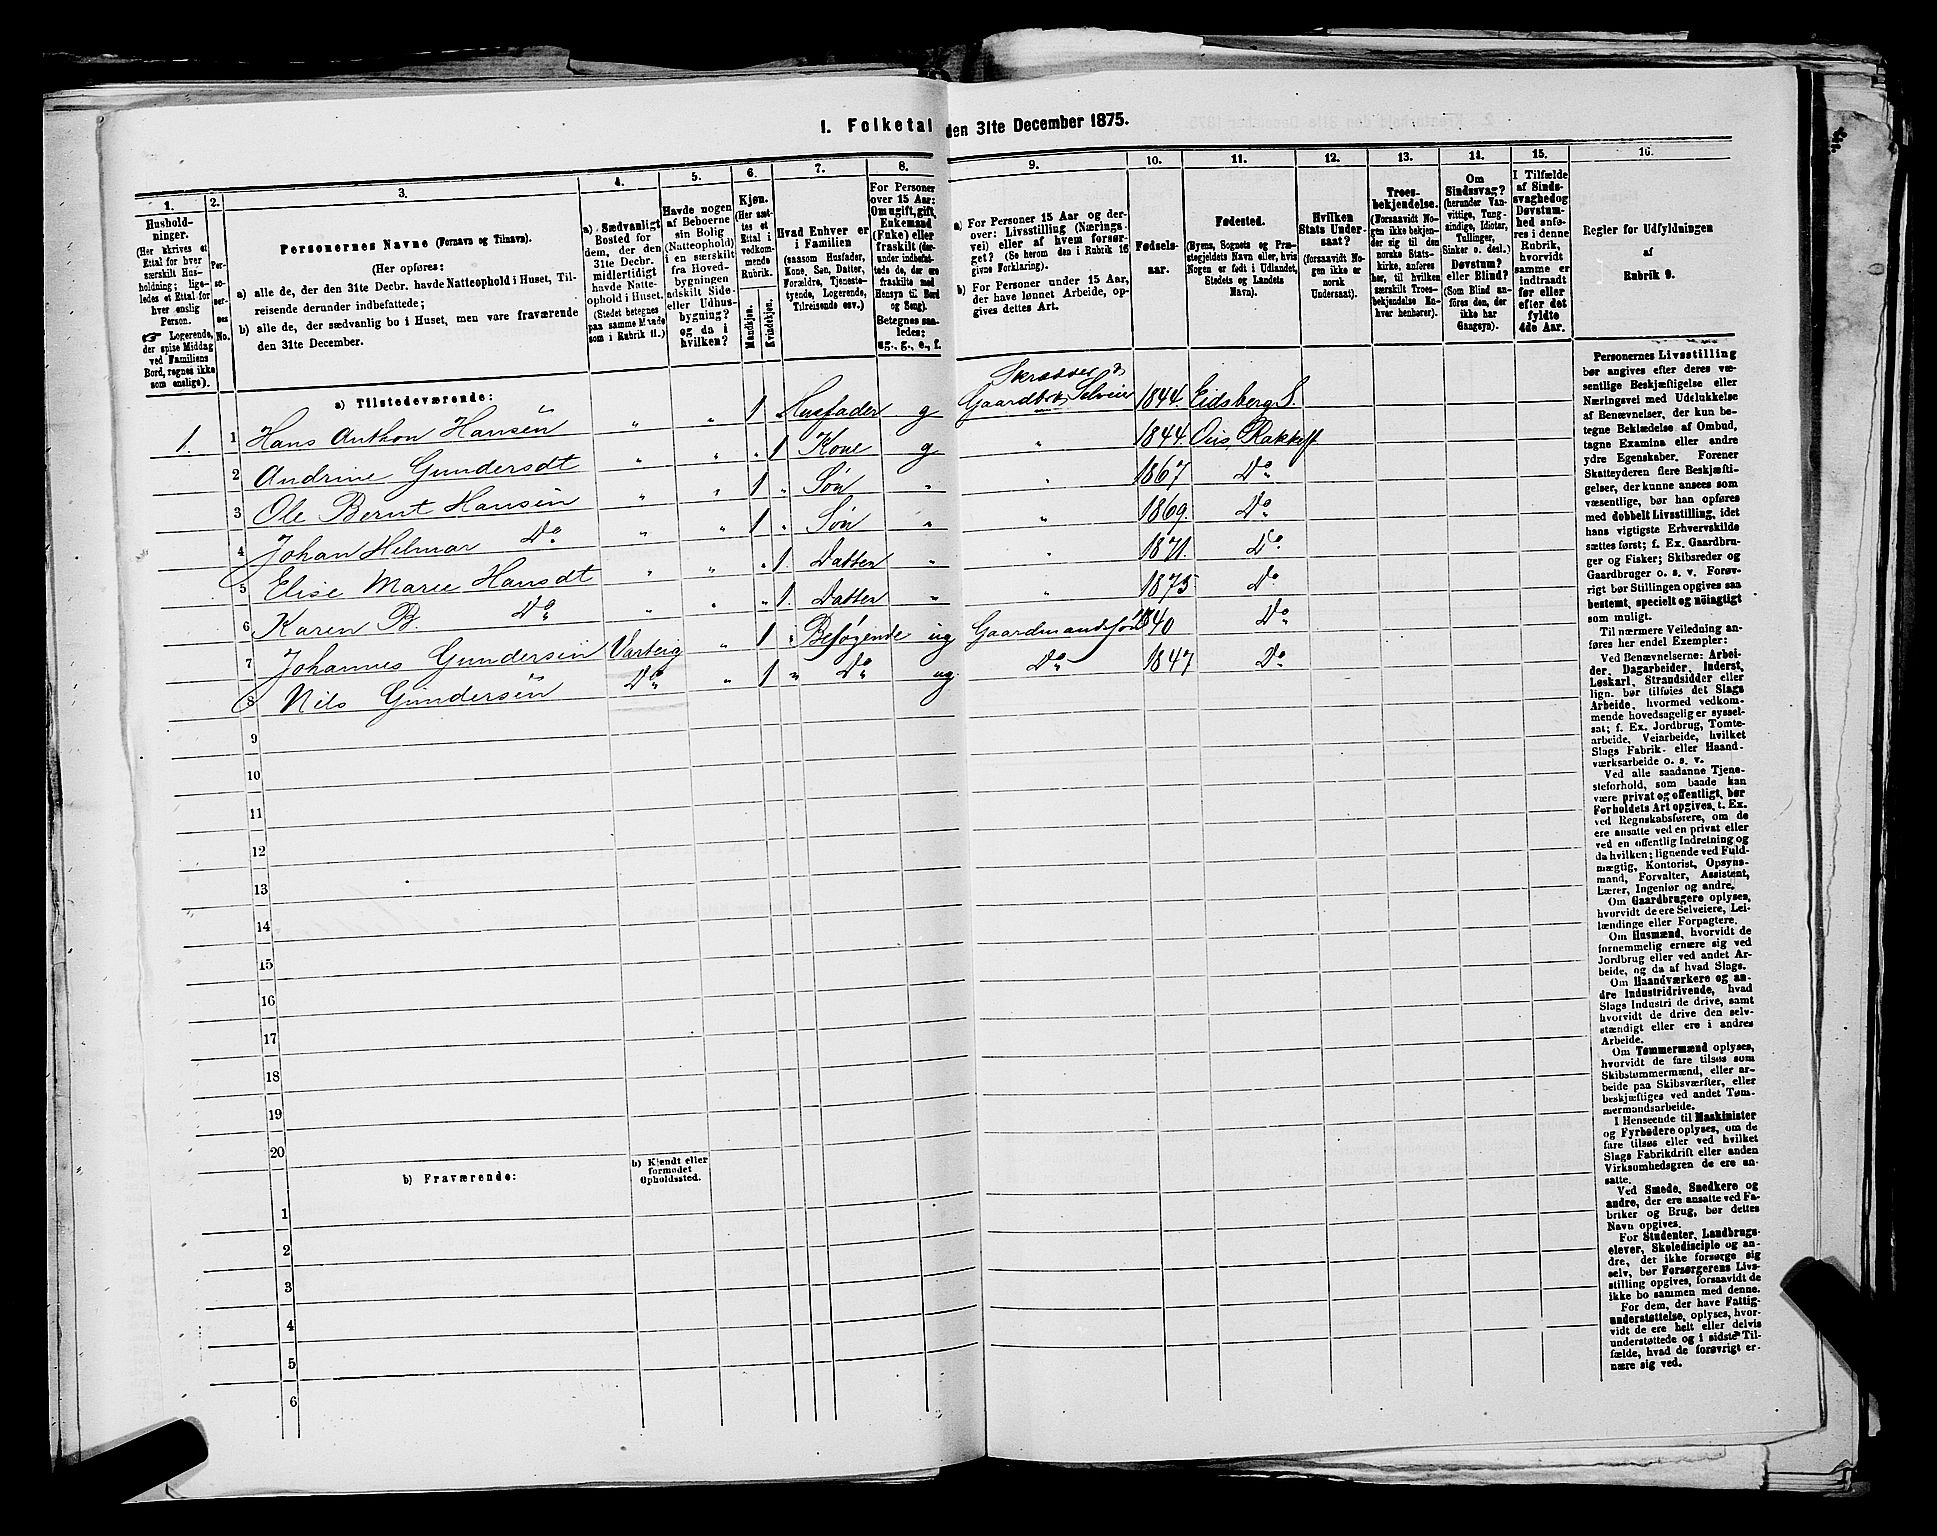 1. Folketal den 31te December 1875.
1. 2. 3. 4. 5. 6. 7. 8. 9. 10. 11. 12. 13. 14. 15. 16.
Hushold-
ninger.
(Her skrives et
Ettal for hver
særskilt Hus-
holdning; lige-
ledes et Ettal for
hver enslig
Person.
☞ Logerende,
der spise Middag
ved Familiens
Bord, regnes ikke
som enslige).
Per-
so-
ner-
nes
No.
Personernes Navne (Fornavn og Tilnavn).
(Her opføres:
a) alle de, der den 31te Decbr. havde Natteophold i Huset, Til-
reisende derunder indbefattede;
b) alle de, der sædvanlig bo i Huset, men vare fraværende
den 31te December.
a) Sædvanligt
Bosted for
dem, der den
31te Decbr.
midlertidigt
havde Natte-
ophold i Huset.
(Stedet betegnes
paa samme Maade
som i Rubrik 11.)
Havde nogen
af Beboerne
sin Bolig
(Natteophold)
i en særskilt
fra Hoved-
bygningen
adskilt Side-
eller Udhus-
bygning?
og da i
hvilken?
Kjøn.
(Her sæt-
tes et
Ettal i
vedkom-
mende
Rubrik.
Mandkjøn.
Kvindekjøn.
Hvad Enhver er
i Familien
(saasom Husfader,
Kone, Søn, Datter,
Forældre, Tjeneste-
tyende, Logerende,
Tilreisende osv.)
For Personer
over 15 Aar:
Om ugift, gift,
Enkemand
(Enke) eller
fraskilt (der-
under indbefat-
tede de, der ere
fraskilte med
Hensyn til Bord
og Seng).
Betegnes saa-
ledes:
ug., g., e., f.
a) For Personer 15 Aar og der-
over: Livsstilling (Nærings-
vei) eller af hvem forsør-
get? (Se herom den i Rubrik 16
givne Forklaring).
b) For Personer under 15 Aar,
der have lønnet Arbeide, op-
gives dettes Art.
Fødsels-
aar.
Fødested.
(Byens, Sognets og Præ-
stegjeldets Navn eller, hvis
Nogen er født i Udlandet,
Stedets og Landets
Navn).
Hvilken
Stats Under-
saat?
(forsaavidt No-
gen ikke er
norsk
Undersaat).
Troes-
bekjendelse.
(Forsaavidt No-
gen ikke bekjen-
der sig til den
norske Stats-
kirke, anføres
her, til hvilken
særskilt Troes-
bekjendelse En-
hver henhører).
Om
Sindssvag?
(herunder Van-
vittige, Tung-
sindige, Idioter,
Tullinger,
Sinker o. desl.)
Døvstum?
eller Blind?
(Som Blind an-
føres den, der
ikke har
Gangsyn).
I Tilfælde
af Sinds-
svaghed og
Døvstum-
hed anfø-
res i denne
Rubrik,
hvorvidt
samme er
indtraadt
før eller
efter det
fyldte
4de Aar.
Regler for Udfyldningen
af
Rubrik 9.
a) Tilstedeværende:
Skrædder &
1. 1 Hans Anthon Hansen " " 1 Husfader g Gaardbr Selveier 1844. Eidsberg S
2 Andrine Gundersdt " " " 1 Kone g " 1844. Ous, Rakkestf
3 Ole Bernt Hansen " " 1 " Søn " " 1867 Do
4 Johan Helmar Do " " 1 " Søn " " 1869. Do
5 Elise Marie Hansdt " " " 1. Datter " " 1871. Do
6 Karen B. Do " " " 1. Datter " " 1875 Do
7 Johannes Gundersen Varteig " 1 " Besøgende ug Gaardmandssøn 1840 Do
8 Nils Gundersen Do " 1 " Do ug Do 1847 Do
9
10
11
12
13
14
15
16
17
18
19
20
b) Fraværende:
b) Kjendt eller
formodet
Opholdssted.
1
2
3
4
5
6
Personernes Livsstilling
bør angives efter deres væ-
sentlige Beskjæftigelse eller
Næringsvei med Udelukkelse
af Benævnelser, der kun be-
tegne Beklædelse af Ombud,
tagne Examina eller andre
ydre Egenskaber. Forener
Skatteyderen flere Beskjæfti-
gelser, der kunne ansees som
væsentlige, bør han opføres
med dobbelt Livsstilling, idet
hans vigtigste Erhvervskilde
sættes først; f. Ex. Gaardbru-
ger og Fisker; Skibsreder og
Gaardbruger o. s. v. Forøv-
rigt bør Stillingen opgives saa
bestemt, specielt og nöiagtigt
som muligt.
Til nærmere Veiledning an-
føres her endel Exempler:
Ved Benævnelserne: Arbei-
der, Dagarbeider, Inderst,
Løskarl, Strandsidder eller
lign. bør tilføies det Slags
Arbeide, hvormed vedkom-
mende hovedsagelig er syssel-
sat; f. Ex. Jordbrug, Tomte-
arbeide, Veiarbeide, hvilket
Slags Fabrik- eller Haand-
værksarbeide o. s. v.
Ved alle saadanne Tjene-
steforhold, som baade kan
være privat og offentligt, bør
Forholdets Art opgives, t. Ex.
ved Regnskabsførere, om de
ere ansatte ved en privat eller
ved en offentlig Indretning og
da hvilken; lignende ved Fuld-
mægtig, Kontorist, Opsyns-
mand, Forvalter, Assistent,
Lærer, Ingeniør og andre.
Om Gaardbrugere oplyses,
hvorvidt de ere Selveiere, Lei-
lændinge eller Forpagtere.
Om Husmænd, hvorvidt de
fornemmelig ernære sig ved
Jordbrug eller ved andet Ar-
beide, og da af hvad Slags.
Om Haandværkere og an-
dre Industridrivende, hvad
Slags Industri de drive, samt
hvorvidt de drive den selv-
stændigt eller ere i andres
Arbeide.
Om Tømmermænd oplyses,
hvorvidt de fare tilsøs som
Skibstømmermænd, eller ar-
beide paa Skibsværfter, eller
beskjæftiges ved andet Tøm-
mermandsarbeide.
I Henseende til Maskinister
og Fyrbødere oplyses, om de
fare tilsøs eller ved hvilket
Slags Fabrikdrift eller anden
Virksomhedsgren de ere an-
satte.
Ved Smede, Snedkere og
andre, der ere ansatte ved Fa-
briker og Brug, bør dettes
Navn opgives.
For Studenter, Landbrugs-
elever, Skoledisciple og an-
dre, der ikke forsørge sig
selv, bør Forsørgerens Livs-
stilling opgives, forsaavidt de
ikke bo sammen med denne.
For dem, der have Fattig-
understøttelse, oplyses, hvor-
vidt de ere helt eller delvis
understøttede og i sidste Til-
fælde, hvad de forøvrigt er-
nære sig ved.